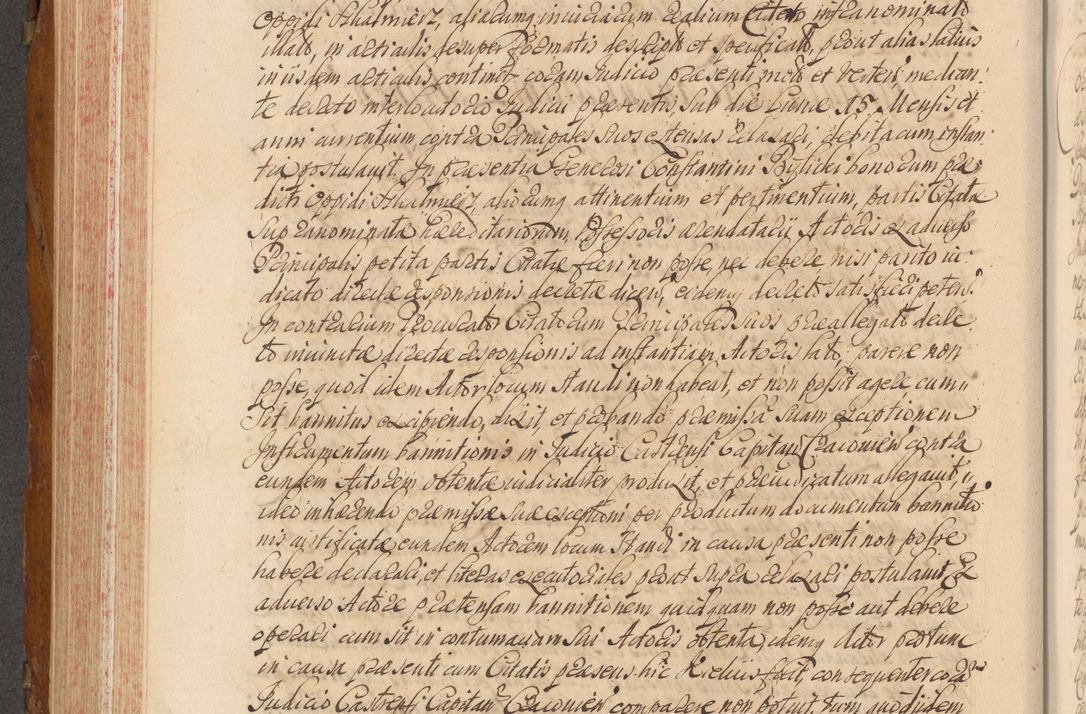 Oppidi Skalmierz, aliarumq; iniuriarum et aliarum Citato infranominato
illato, in articulis desuper formatis descripto et specificato, prout alias latius
in iisdem articulis continetz, coram Judicio præsenti moto et verten: median:
te decreto interlocutorio Judicii præsentis sub die Lunæ 15 Mensis et
anni currentium contra Principales suos extensas relaxari, debita cum instan:
tia postulavit. In præsentia Generosi Constantini Bylicki bonorum præ
dicti Oppidi Skalmierz, aliorumq; attinentium et pertinentium, partis Citatæ
supranominatæ hæreditariorum, Possessoris arendatarii Actoris ex adverso
Principalis petita partis Citatæ fieri non posse, nec debere nisi parito iu:
dicato directæ responsionis decretæ dicen: eidemq; decreto satisfieri peten:
In contrarium Procurator Citatorum Principales suos præallegato decre
to iniunctæ directæ responsionis ad instantiam Actoris lato, parere non
posse, quod idem Actor locum standi non habeat, et non possit agere cum
sit bannitus excipiendo, dixit, et probando præmissam suam exceptionem
Instrumentum bannitionis in Judicio Castrensi Capitan: Cracovien: contra
eundem Actorem obtentæ iudicialiter produxit, et præiudicatum allegavit,
ideo inhærendo præmissæ suæ exceptioni per productum documentum bannitio
nis iustificatæ, eundem Actorem locum standi in causa præsenti non posse
habere declarari, et literas executoriales prout supra relaxari postulavit. Ex
adverso Actore prætensam bannitionem quicquam non posse aut debere
operari cum sit in contumaciam sui Actoris obtenta, idemq; Actor pro tunc
in causa præsenti cum Citatis præsens hic Kielciis fuit, consequenter coram
Judicio Castrensi Capitan: Cracovien: comparere non potuit, tum quod idem